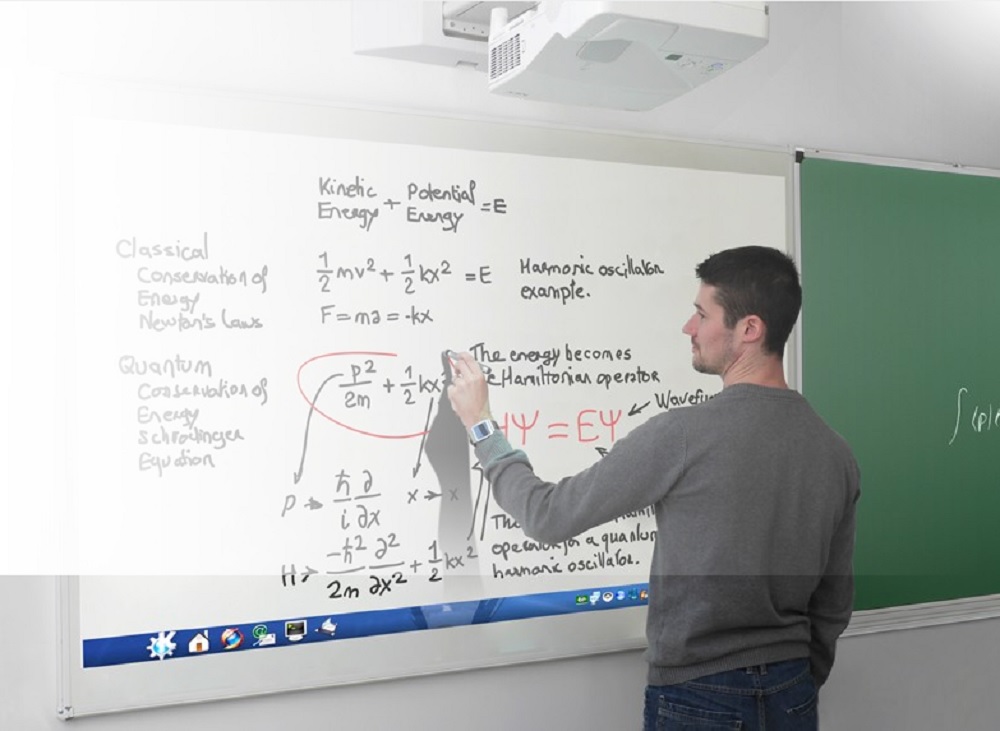 Kinetic Potential
Energy + Energy = E
Classical
Conservation of
Energy
Newton's Laws
1/2 mv² + 1/2 kx² = E
Harmonic oscillator
example.
F = ma = -kx
Quantum
Conservation of
Energy
Schrodinger
Equation
p²/2m + 1/2 kx
The energy becomes
Hamiltonian operator
Ψ = EΨ
p → ℏ/i ∂/∂x
x → x
operator for a quantum
harmonic oscillator.
H → -ℏ²/2m ∂²/∂x² + 1/2 kx²